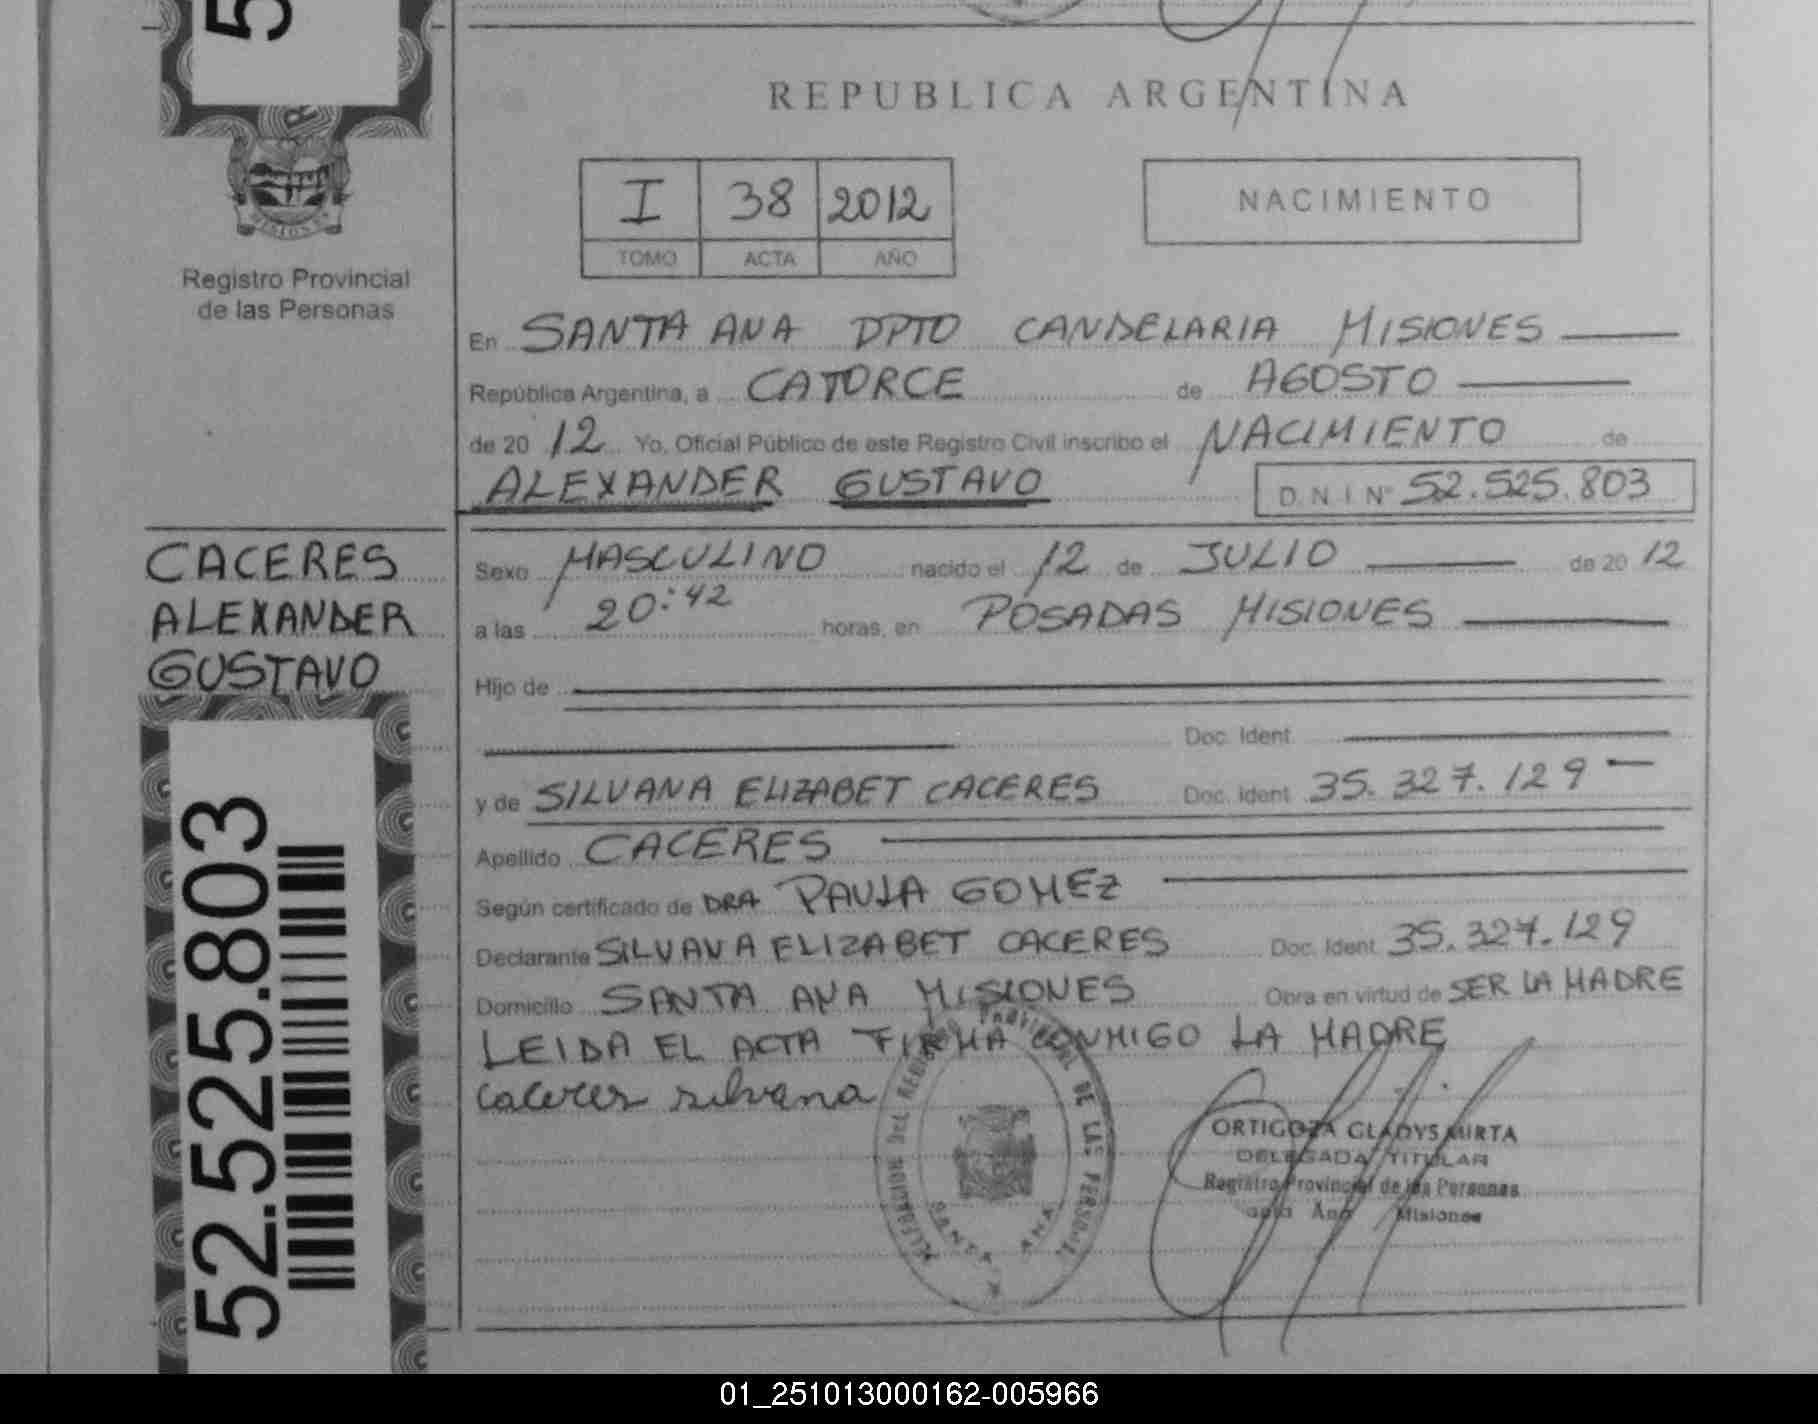 REPUBLICA ARGENTINA
I 38 2012
TOMO ACTA AÑO
NACIMIENTO
Registro Provincial
de las Personas
En SANTA ANA DPTO CANDELARIA MISIONES
República Argentina, a CATORCE de AGOSTO
de 20 12 Yo, Oficial Público de este Registro Civil inscribo el NACIMIENTO de
ALEXANDER GUSTAVO D N I Nº 52.525.803
CACERES
ALEXANDER
GUSTAVO
52.525.803
Sexo MASCULINO nacido el 12 de JULIO de 20 12
a las 20:42 horas, en POSADAS MISIONES
Hijo de
Doc. Ident.
y de SILVANA ELIZABET CACERES Doc. Ident. 35.327.129
Apellido CACERES
Según certificado de DRA PAULA GOMEZ
Declarante SILVANA ELIZABET CACERES Doc. Ident. 35.327.129
Domicilio SANTA ANA MISIONES Obra en virtud de SER LA MADRE
LEIDA EL ACTA FIRMA CONMIGO LA MADRE
caceres silvana
DE LAS PERSONAS
SANTA ANA
ORTIGOZA GLADYS MIRTA
DELEGADA TITULAR
Registro Provincial de las Personas
Ana Misiones
01_251013000162-005966